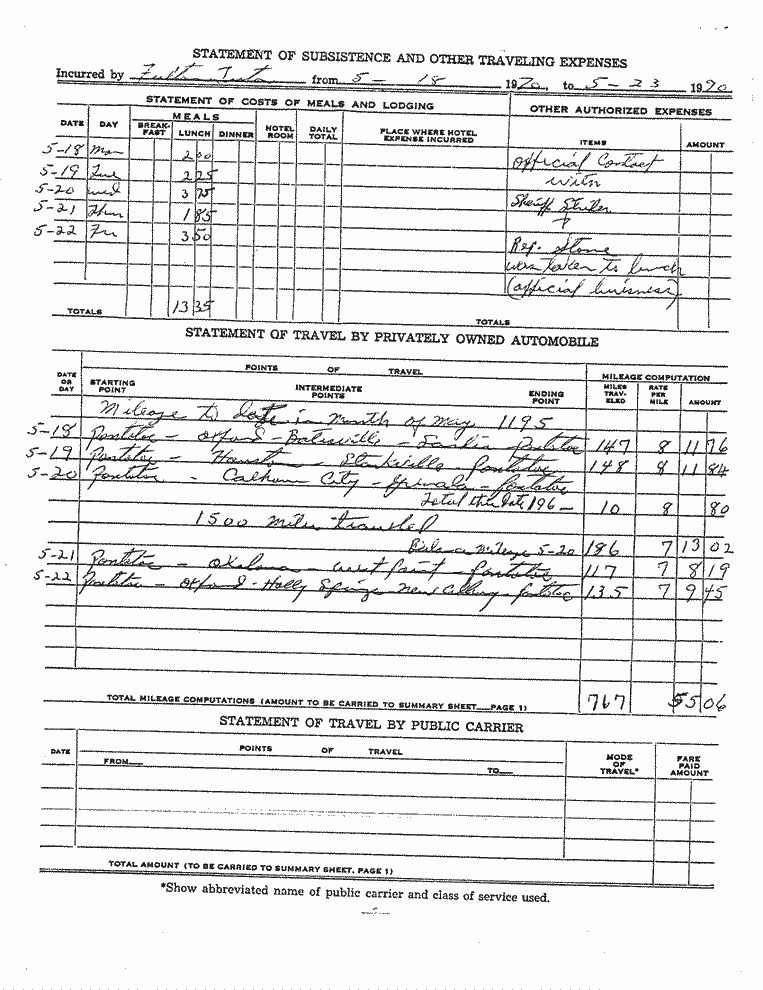 STATEMENT OF SUBSISTENCE AND OTHER TRAVELING EXPENSES
Incurred by Fulton from 5 - 18 1970, to 5 - 23 1970
STATEMENT OF COSTS OF MEALS AND LODGING
OTHER AUTHORIZED EXPENSES
DATE DAY MEALS BREAK-FAST LUNCH DINNER HOTEL ROOM DAILY TOTAL PLACE WHERE HOTEL EXPENSE INCURRED ITEMS AMOUNT
5-18 Mon 2 00 official Contact
5-19 Tue 2 25 with
5-20 wed 3 75 Sheriff
5-21 Thur 1 85
5-22 Fri 3 50 Rep. Stone
was taken to lunch
(official buisness)
TOTALS 13 35 TOTALS
STATEMENT OF TRAVEL BY PRIVATELY OWNED AUTOMOBILE
DATE OR DAY POINTS OF TRAVEL MILEAGE COMPUTATION
STARTING POINT INTERMEDIATE POINTS ENDING POINT MILES TRAV-ELED RATE PER MILE AMOUNT
Mileage to date in month of May 1195
5-18 Pontotoc - Oxford - Batesville - Pontotoc 147 8 11 76
5-19 Pontotoc - Houston - Starkville - Pontotoc 148 8 11 84
5-20 Pontotoc - Calhoun City - Grenada - Pontotoc
Total this date 196 - 10 8 80
1500 miles traveled
Balance Mileage 5-20 186 7 13 02
5-21 Pontotoc - Okolona - West Point - Pontotoc 117 7 8 19
5-22 Pontotoc - Oxford - Holly Springs New Albany - Pontotoc 135 7 9 45
TOTAL MILEAGE COMPUTATIONS (AMOUNT TO BE CARRIED TO SUMMARY SHEET PAGE 1) 767 55 06
STATEMENT OF TRAVEL BY PUBLIC CARRIER
DATE POINTS OF TRAVEL MODE OF TRAVEL* FARE PAID AMOUNT
FROM TO
TOTAL AMOUNT (TO BE CARRIED TO SUMMARY SHEET, PAGE 1)
*Show abbreviated name of public carrier and class of service used.